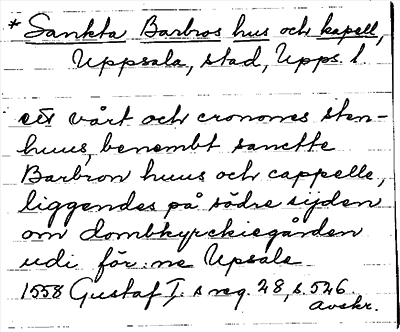 * Sankta Barbros hus och kapell,
Uppsala, stad, Upps. l.
ett vårt och cronones sten-
huus, benembt sanctte
Barbron huus och cappelle,
liggendes på södre sijden
om domkyrckiegården
udi för:ne Upsale
1558 Gustaf I:s reg. 28, s. 526.
avskr.